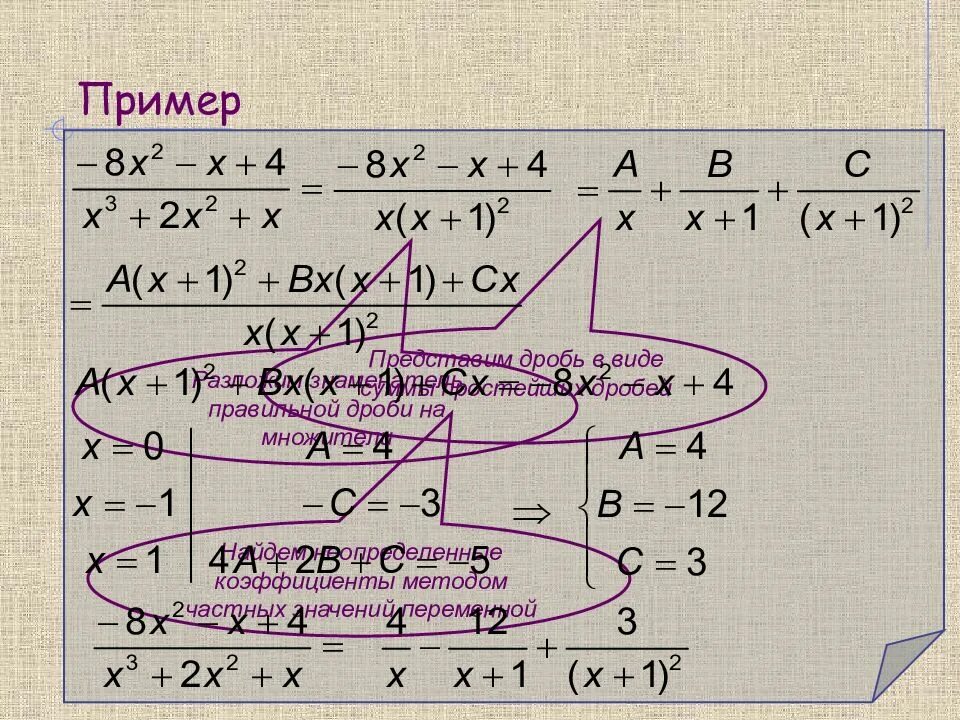 Пример
(−8x² − x + 4)/(x³ + 2x² + x) = (−8x² − x + 4)/(x(x + 1)²) = A/x + B/(x + 1) + C/(x + 1)²
= (A(x + 1)² + Bx(x + 1) + Cx)/(x(x + 1)²)
Представим дробь в виде
суммы простейших дробей
A(x + 1)² + Bx(x + 1) + Cx = −8x² − x + 4
Разложим знаменатель
правильной дроби на
множители
x = 0 | A = 4
x = −1 | −C = −3
x = 1 | 4A + 2B + C = −5
⇒ { A = 4
B = −12
C = 3
Найдем неопределенные
коэффициенты методом
частных значений переменной
(−8x² − x + 4)/(x³ + 2x² + x) = 4/x − 12/(x + 1) + 3/(x + 1)²